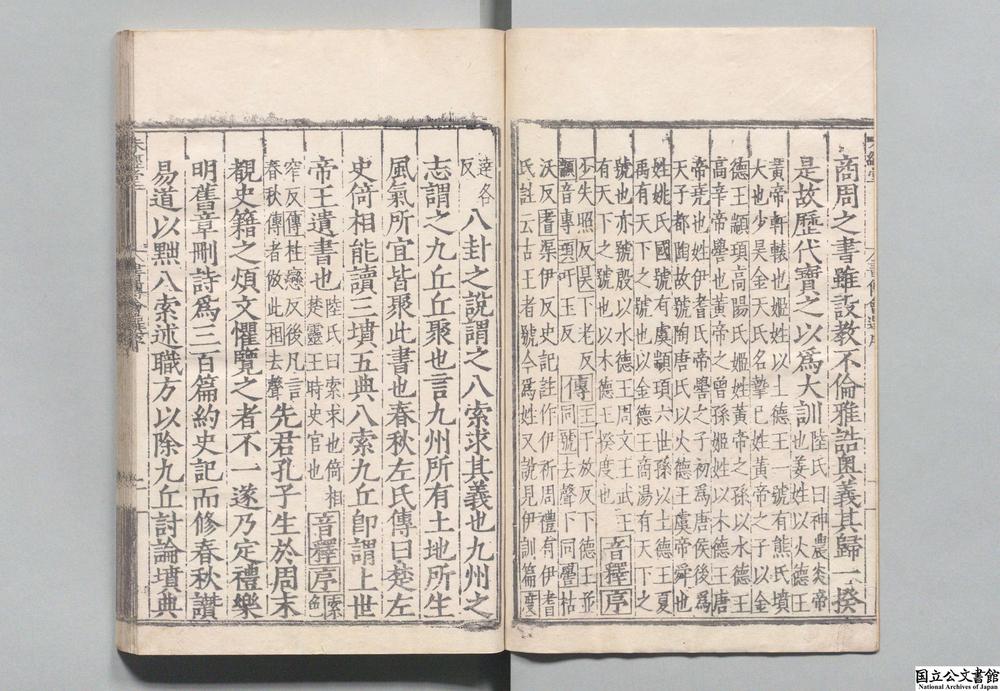 商周之書雖設教不倫雅誥奧義其歸一揆
是故歷代寶之以爲大訓陸氏曰神農炎帝
也姜姓以火德王
黃帝軒轅也姬姓以土德王一號有熊氏墳
大也少昊金天氏名摯己姓黃帝之子以金
德王顓頊高陽氏姬姓黃帝之孫以水德王
高辛帝嚳也黃帝之曾孫姬姓以木德王唐
帝堯也姓伊耆氏帝嚳之子初爲唐侯後爲
天子都陶故號陶唐氏以火德王虞帝舜也
姓姚氏國號有虞顓頊六世孫以土德王夏
禹有天下之號也以金德王商湯有天下之
號也亦號殷以水德王周文王武王
有天下之號也以木德王揆度也
音釋序
少失照反昊下老反
顓音專頊吁玉反
傳王于放反下德王並
同號去聲下同嚳枯
沃反耆渠伊反史記註作伊祈周禮有伊耆
氏註云古王者號今爲姓又說見伊訓篇度
達各
反
八卦之說謂之八索求其義也九州之
志謂之九丘丘聚也言九州所有土地所生
風氣所宜皆聚此書也春秋左氏傳曰楚左
史倚相能讀三墳五典八索九丘即謂上世
帝王遺書也陸氏曰索求也倚相
楚靈王時史官也
音釋序索
色
窄反傳柱戀反後凡言
春秋傳者倣此相去聲
先君孔子生於周末
覩史籍之煩文懼覽之者不一遂乃定禮樂
明舊章刪詩爲三百篇約史記而修春秋讚
易道以黜八索述職方以除九丘討論墳典
国立公文書館
National Archives of Japan